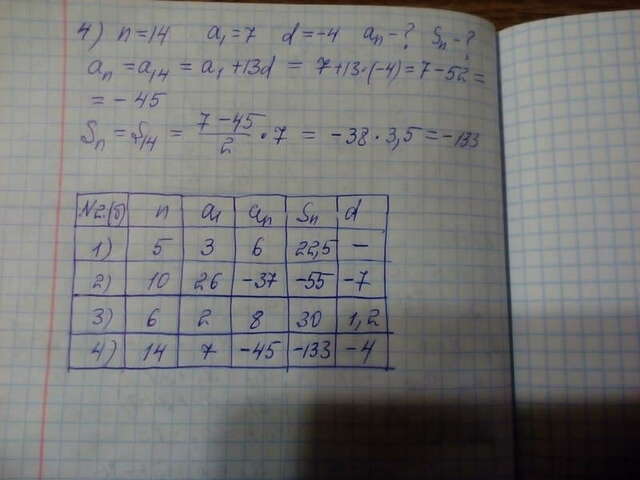 4) n=14 a₁=7 d=-4 aₙ-? Sₙ-?
aₙ=a₁₄=a₁+13d = 7+13·(-4)=7-52=
=-45
Sₙ=S₁₄= (7-45)/2 · 7 = -38·3,5=-133
№2.(б) n a₁ aₙ Sₙ d
1) 5 3 6 22,5 -
2) 10 26 -37 -55 -7
3) 6 2 8 30 1,2
4) 14 7 -45 -133 -4